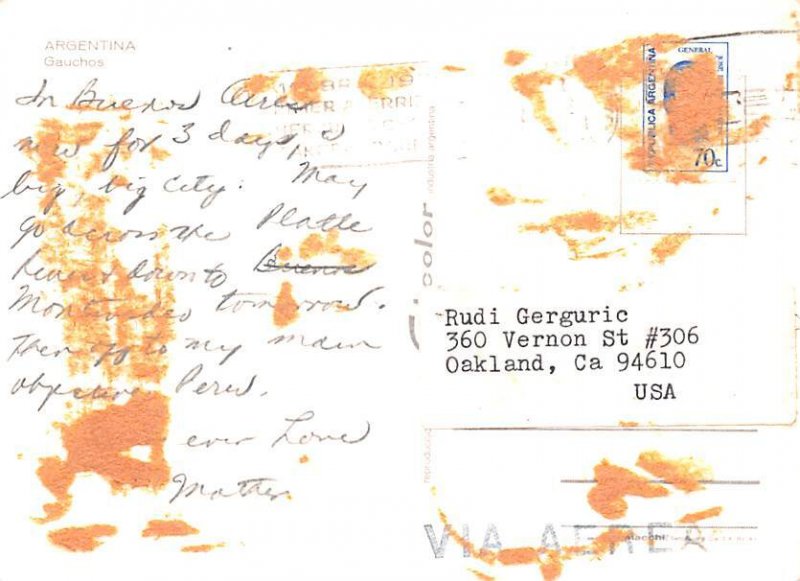 ARGENTINA
Gauchos
In Buenos Aires
now for 3 days, a
big, big city. May
go across the Platte
River & down to Buenos
Montevideo tomorrow.
Then off to my main
objective Peru.
ever Love
Mother
industria argentina
color
GENERAL
REPUBLICA ARGENTINA
70c.
Rudi Gerguric
360 Vernon St #306
Oakland, Ca 94610
USA
VIA AEREA